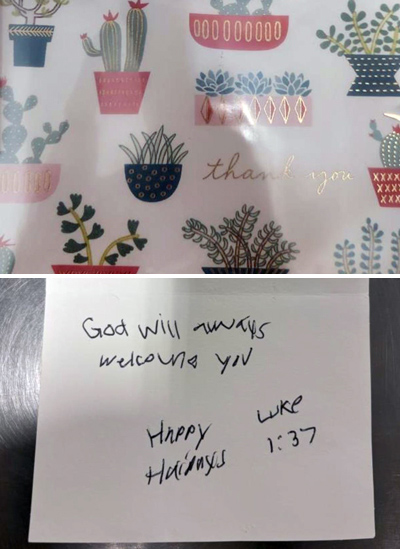 thank you
God will always
welcome you
Happy Luke
Holidays 1:37